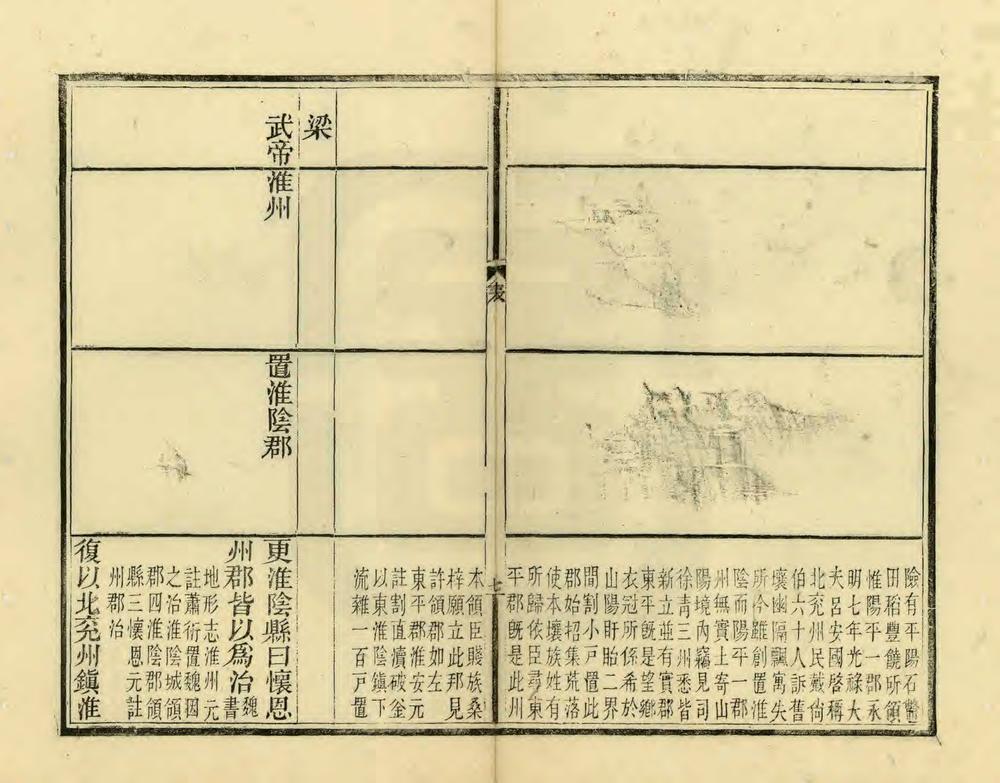 險有平陽石鱉
田稻豐饒所領
惟陽平一郡永
明七年光祿大
夫呂安國啓稱
北兗州民戴尚
伯六十人訴舊
壤幽隔飄寓失
所今雖創置淮
陰而陽平一郡
州無實土寄山
陽境內竊見司
徐青三州悉皆
新立並有實郡
東平既是望鄉
衣冠所係希於
山陽盱眙二界
間割小戶置此
郡始招集荒落
使本壤族姓有
所歸依臣尋東
平郡既是此州
表
七
本領臣賤族桑
梓願立此邦見
許領郡如左
東平郡淮安元
註割直瀆破釜
以東淮陰鎮下
流雜一百戶置
梁
武帝淮州
置淮陰郡
更淮陰縣曰懷恩
州郡皆以爲治魏書
地形志淮州元
註蕭衍置魏因
之治淮陰城領
郡四淮陰郡領
縣三懷恩元註
州郡治
復以北兗州鎮淮